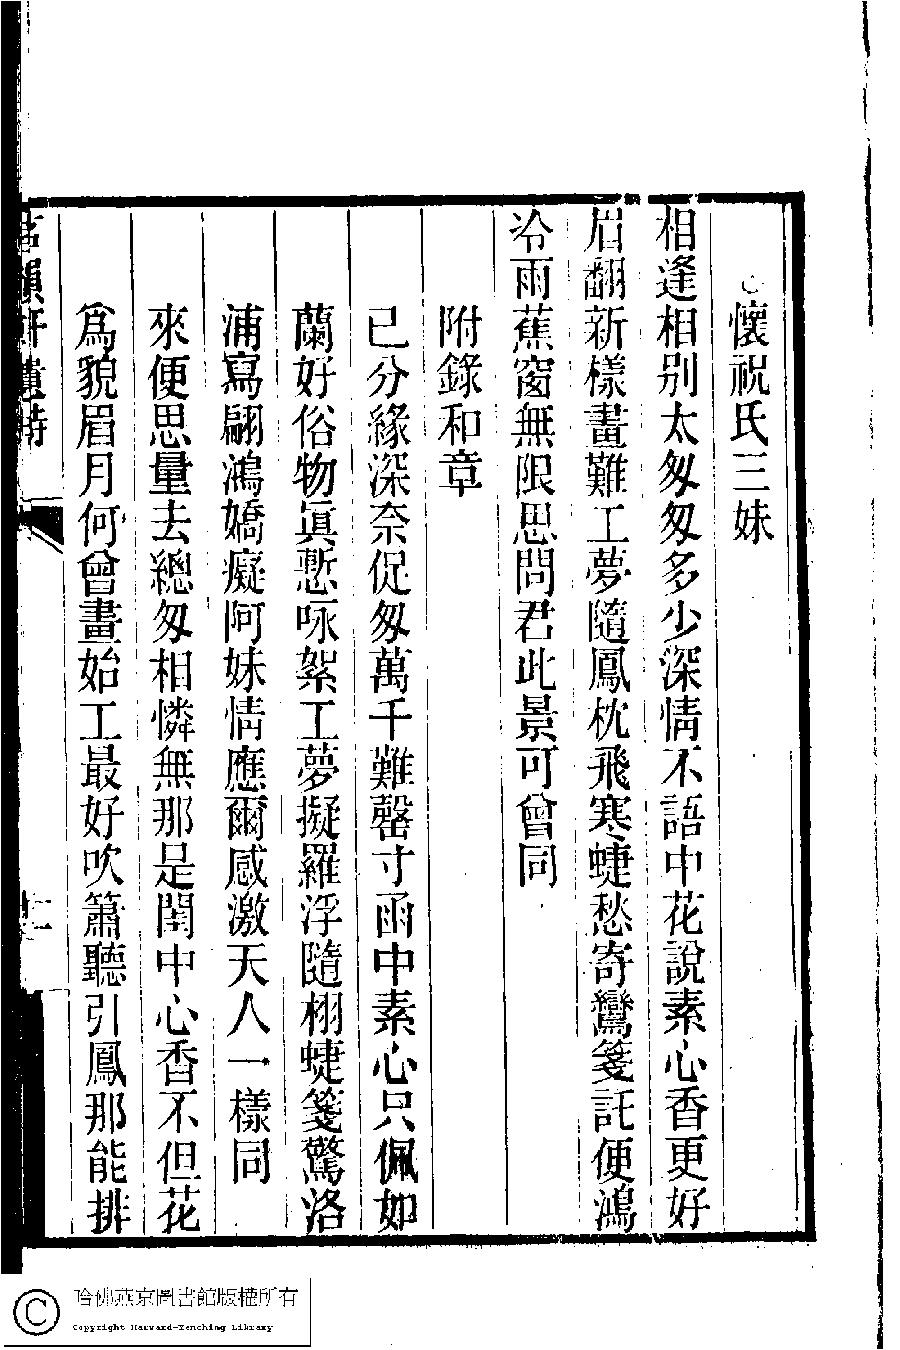 懷祝氏三妹
相逢相别太匆匆多少深情不語中花說素心香更好
眉翻新樣畫難工夢隨鳳枕飛寒蜨愁寄鸞箋託便鴻
冷雨蕉窗無限思問君此景可曾同
附錄和章
已分緣深奈促匆萬千難罄寸函中素心只佩如
蘭好俗物眞慙咏絮工夢擬羅浮隨栩蜨箋驚洛
浦寫翩鴻嬌癡阿妹情應爾感激天人一樣同
來便思量去總匆相憐無那是閨中心香不但花
爲貌眉月何曾畫始工最好吹簫聽引鳳那能排
韻軒遺詩
十一
哈佛燕京圖書館版權所有
Copyright Harvard-Yenching Library